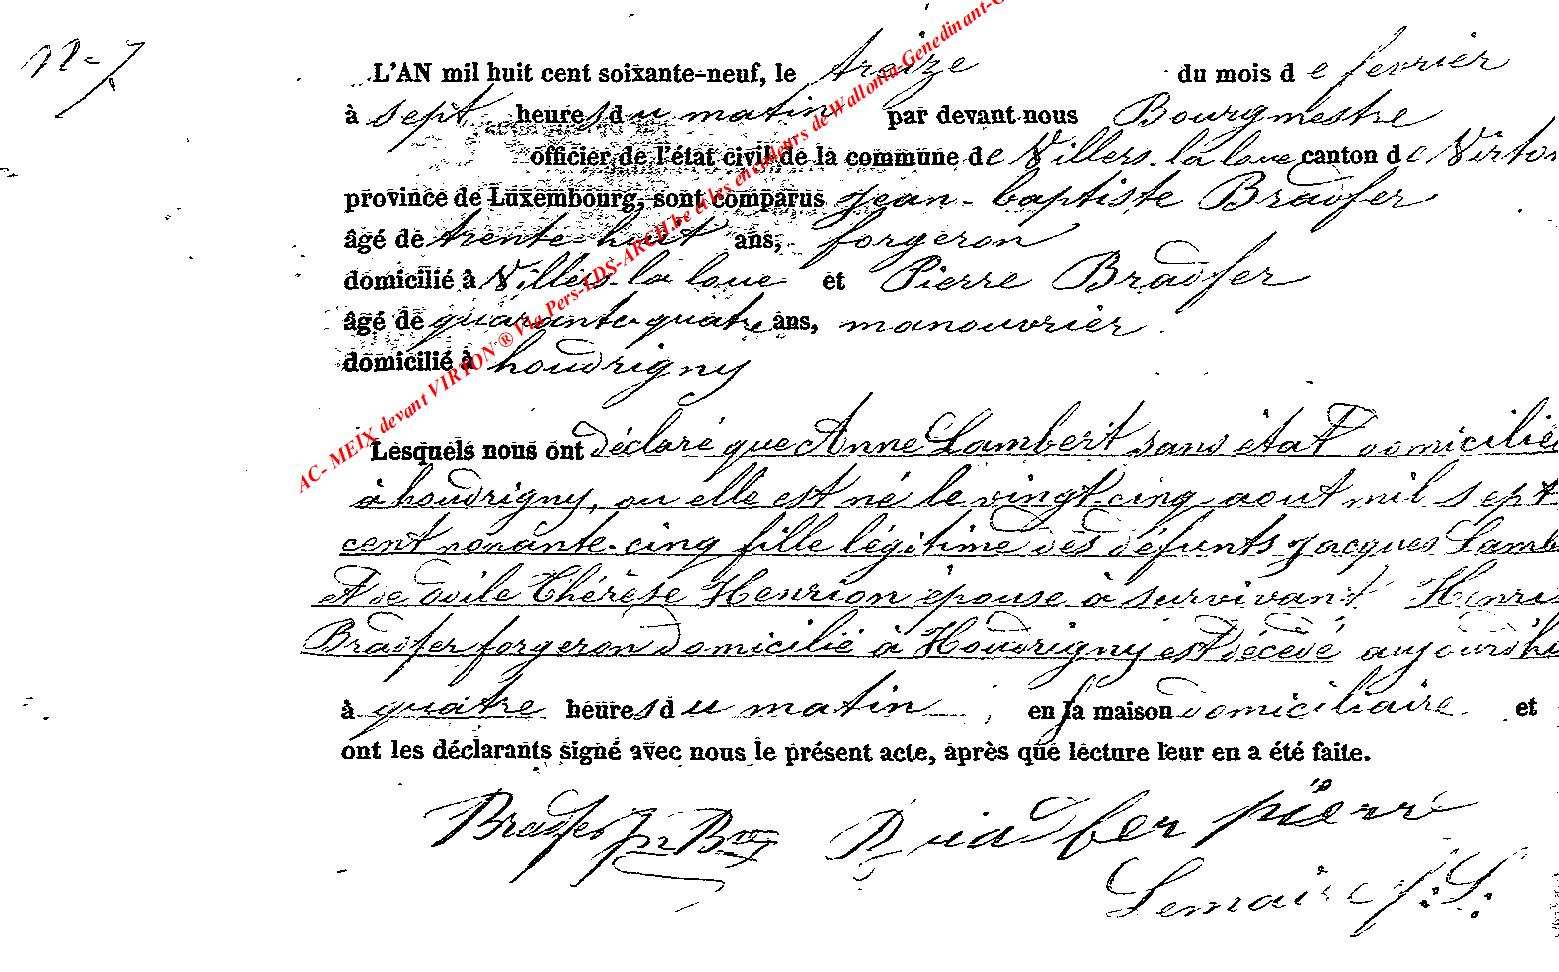 N-7
L'AN mil huit cent soixante-neuf, le treize du mois de fevrier
à sept heures du matin par devant nous Bourgmestre
officier de l'état civil de la commune de Villers-la loue canton de Virton
province de Luxembourg, sont comparus Jean-baptiste Bradfer
âgé de trente-huit ans, forgeron
domicilié à Villers-la loue et Pierre Bradfer
âgé de quarante-quatre ans, manouvrier.
domicilié à houdrigny
Lesquels nous ont déclaré que Anne Lambert sans état domicilié
à houdrigny, ou elle est né le vingt-cinq aout mil sept
cent nonante-cinq fille légitime des défunts Jacques Lamb
Et de odile Thérèse Henrion épouse à survivant Henri
Bradfer forgeron domicilié à Houdrigny est décédé aujourd'hu
à quatre heures du matin, en sa maison domiciliaire. et
ont les déclarants signé avec nous le présent acte, après que lecture leur en a été faite.
Bradfer Jn Bte Bradfer pierre
Lemaire J:L:
AC- MEIX devant VIRTON ® Via Pers-LDS-ARCH.be et les encodeurs de Wallonia-Genedinant-G